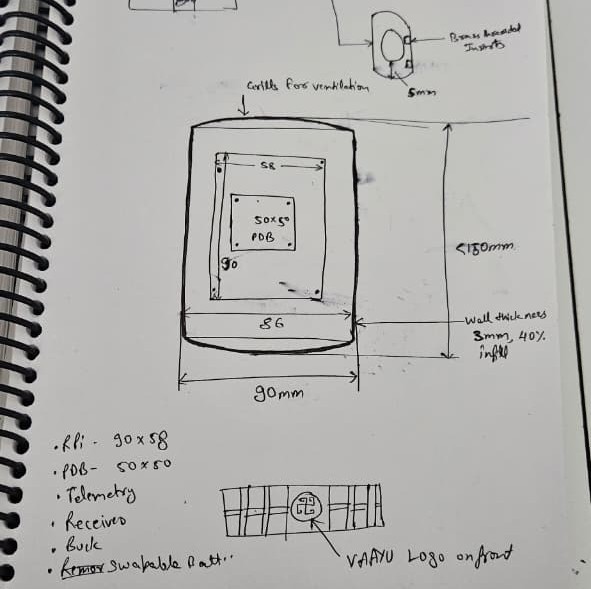 Brass threaded
Inserts
5mm
Grills for ventilation
58
50x50
PDB
90
<150mm
86
Wall thickness
3mm, 40%
infill
90mm
• RPi - 90x58
• PDB - 50x50
• Telemetry
• Receiver
• Buck
• Swapable Batt..
VAAYU LOGO on front